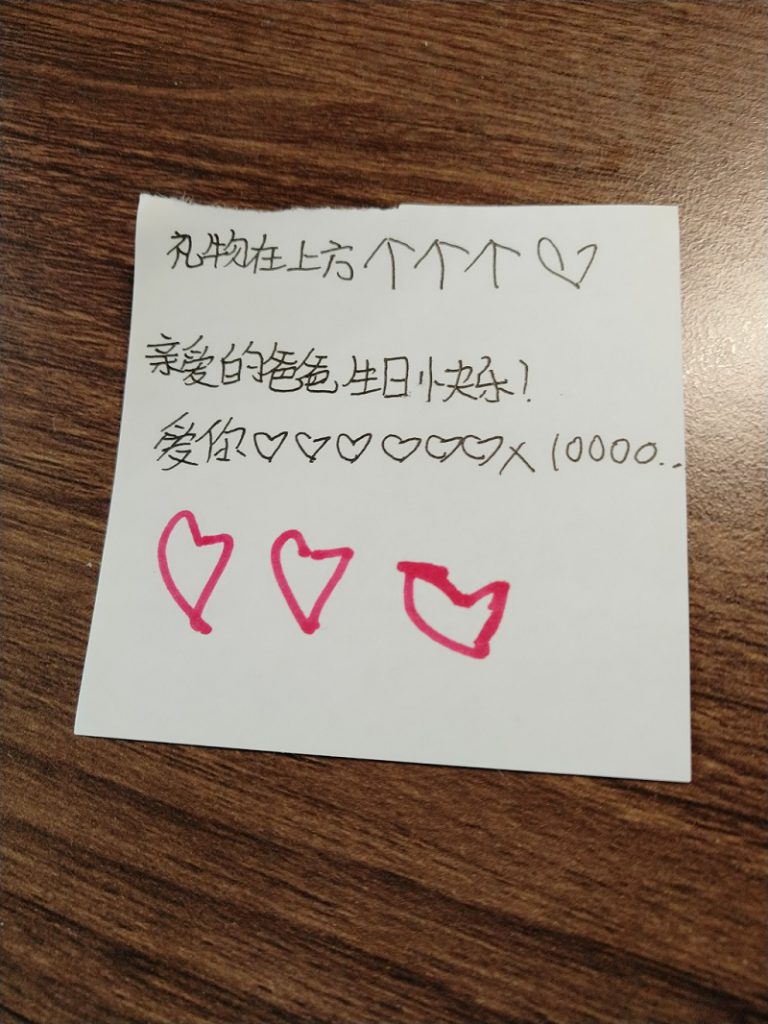 礼物在上方↑↑↑♡
亲爱的爸爸生日快乐!
爱你♡♡♡♡♡♡×10000..